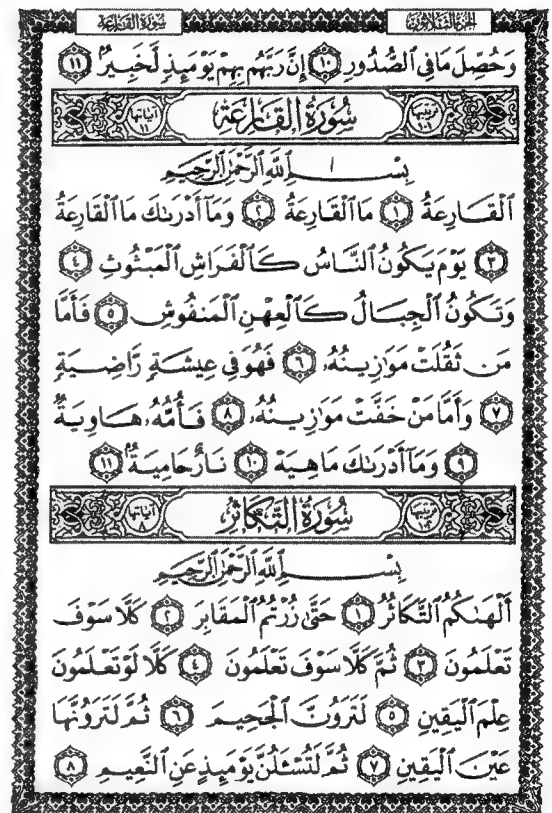 سُورَةُ القَارِعَة الجُزءُ الثَّلَاثُونَ
وَحُصِّلَ مَا فِي ٱلصُّدُورِ ١٠ إِنَّ رَبَّهُم بِهِمْ يَوْمَئِذٍ لَّخَبِيرٌۢ ١١
ترتيبها ١٠١ سُورَةُ القَارِعَةِ آياتها ١١
بِسْمِ ٱللَّهِ ٱلرَّحْمَٰنِ ٱلرَّحِيمِ
ٱلْقَارِعَةُ ١ مَا ٱلْقَارِعَةُ ٢ وَمَآ أَدْرَىٰكَ مَا ٱلْقَارِعَةُ
٣ يَوْمَ يَكُونُ ٱلنَّاسُ كَٱلْفَرَاشِ ٱلْمَبْثُوثِ ٤
وَتَكُونُ ٱلْجِبَالُ كَٱلْعِهْنِ ٱلْمَنفُوشِ ٥ فَأَمَّا
مَن ثَقُلَتْ مَوَٰزِينُهُۥ ٦ فَهُوَ فِي عِيشَةٍ رَّاضِيَةٍ
٧ وَأَمَّا مَنْ خَفَّتْ مَوَٰزِينُهُۥ ٨ فَأُمُّهُۥ هَاوِيَةٌ
٩ وَمَآ أَدْرَىٰكَ مَا هِيَهْ ١٠ نَارٌ حَامِيَةٌۢ ١١
ترتيبها ١٠٢ سُورَةُ التَّكَاثُرِ آياتها ٨
بِسْمِ ٱللَّهِ ٱلرَّحْمَٰنِ ٱلرَّحِيمِ
أَلْهَىٰكُمُ ٱلتَّكَاثُرُ ١ حَتَّىٰ زُرْتُمُ ٱلْمَقَابِرَ ٢ كَلَّا سَوْفَ
تَعْلَمُونَ ٣ ثُمَّ كَلَّا سَوْفَ تَعْلَمُونَ ٤ كَلَّا لَوْ تَعْلَمُونَ
عِلْمَ ٱلْيَقِينِ ٥ لَتَرَوُنَّ ٱلْجَحِيمَ ٦ ثُمَّ لَتَرَوُنَّهَا
عَيْنَ ٱلْيَقِينِ ٧ ثُمَّ لَتُسْـَٔلُنَّ يَوْمَئِذٍ عَنِ ٱلنَّعِيمِ ٨